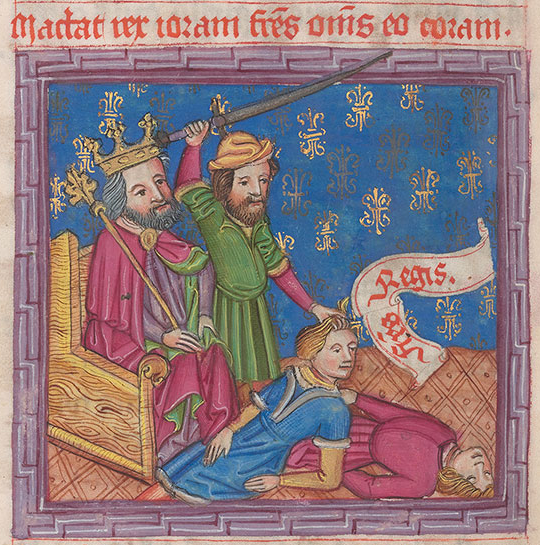 Mactat rex ioram fr̃es om̃s eo coram.
Regis.